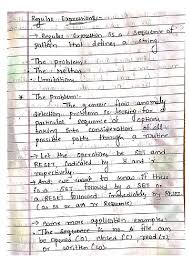 Regular Expressions:-
→ Regular Expression is a sequence of
pattern that defines a string
- The problems
- The method
- Limitations
* The Problem:-
→ The generic flow anomaly
detection problem is looking for a
particular sequence of options
taking into consideration of all
possible paths through a routine
→ Let the operation be SET and
RESET, indicated by S and R
respectively.
→ And, we want to know if there
is a SET followed by a SET or
a RESET followed immediately by RESET
(an SS or an RR sequence)
→ Some more application examples:
• The sequence is no. A file can
be opened (O), closed (C), read (R),
or written (W).